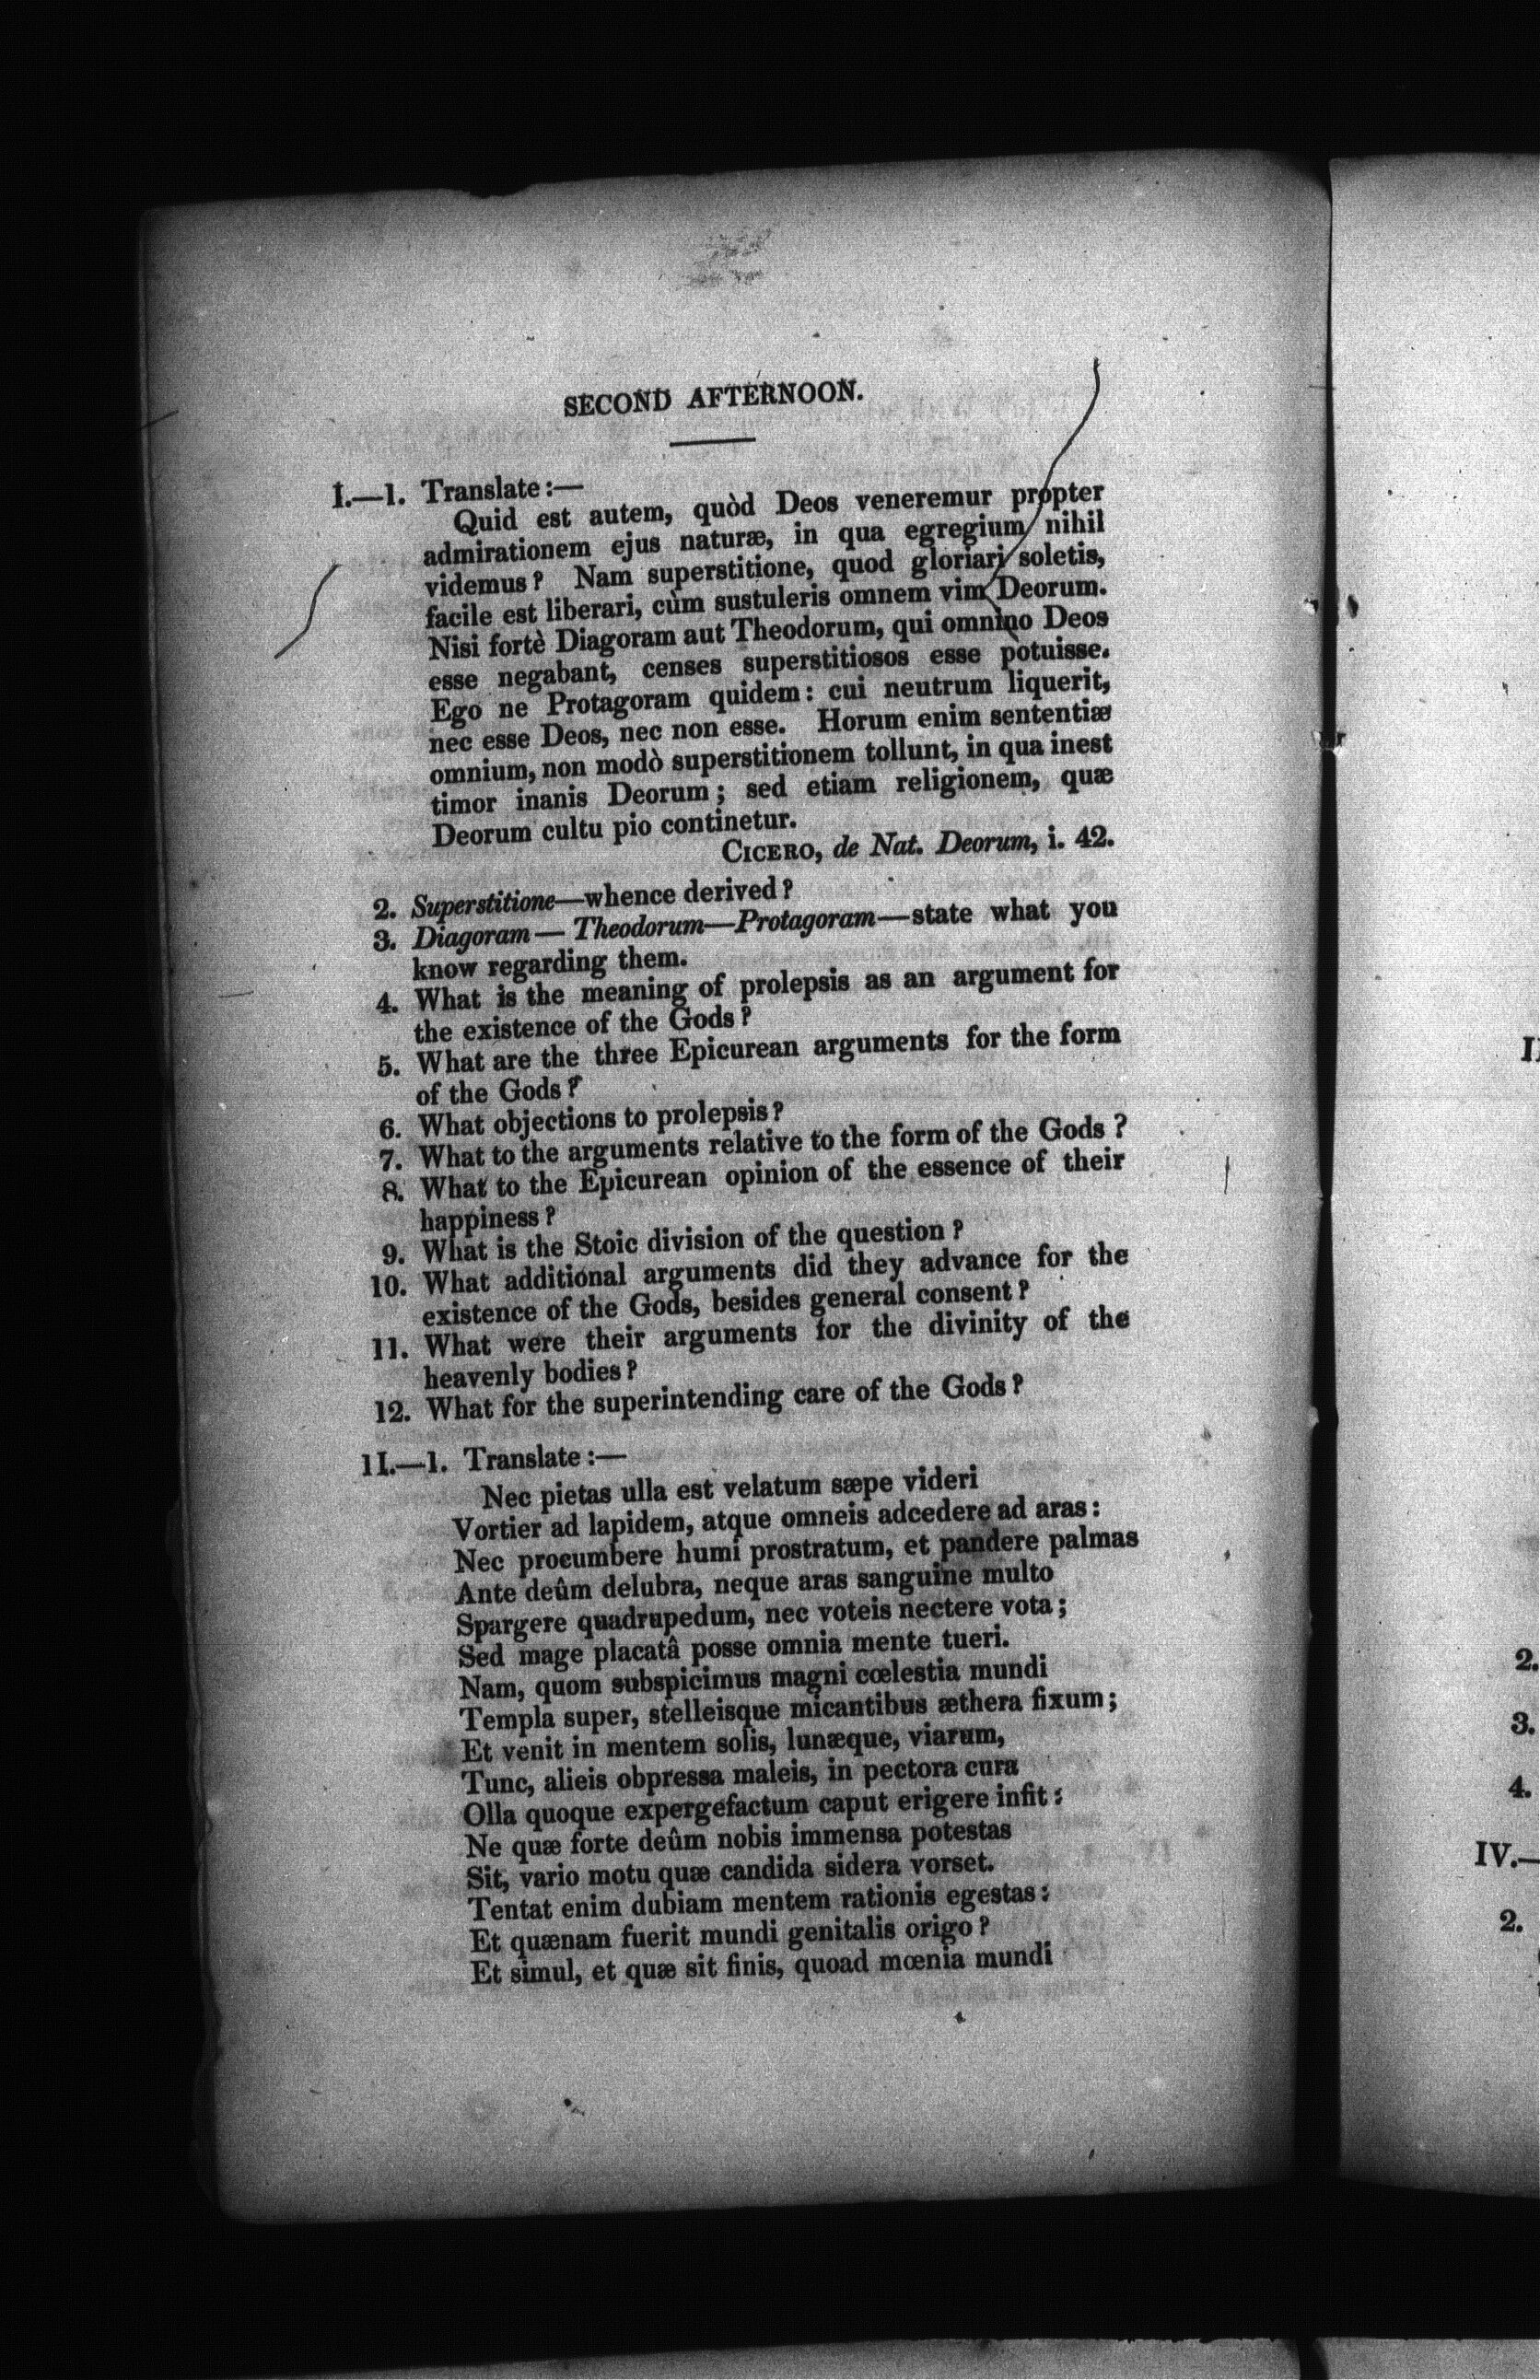 SECOND AFTERNOON.
I.—1. Translate:—
Quid est autem, quòd Deos veneremur propter
admirationem ejus naturæ, in qua egregium nihil
videmus? Nam superstitione, quod gloriari soletis,
facile est liberari, cùm sustuleris omnem vim Deorum.
Nisi fortè Diagoram aut Theodorum, qui omnino Deos
esse negabant, censes superstitiosos esse potuisse.
Ego ne Protagoram quidem: cui neutrum liquerit,
nec esse Deos, nec non esse. Horum enim sententiæ
omnium, non modò superstitionem tollunt, in qua inest
timor inanis Deorum; sed etiam religionem, quæ
Deorum cultu pio continetur.
CICERO, de Nat. Deorum, i. 42.
2. Superstitione—whence derived?
3. Diagoram—Theodorum—Protagoram—state what you
know regarding them.
4. What is the meaning of prolepsis as an argument for
the existence of the Gods?
5. What are the three Epicurean arguments for the form
of the Gods?
6. What objections to prolepsis?
7. What to the arguments relative to the form of the Gods?
8. What to the Epicurean opinion of the essence of their
happiness?
9. What is the Stoic division of the question?
10. What additional arguments did they advance for the
existence of the Gods, besides general consent?
11. What were their arguments for the divinity of the
heavenly bodies?
12. What for the superintending care of the Gods?
II.—1. Translate:—
Nec pietas ulla est velatum sæpe videri
Vortier ad lapidem, atque omneis adcedere ad aras:
Nec procumbere humi prostratum, et pandere palmas
Ante deûm delubra, neque aras sanguine multo
Spargere quadrupedum, nec voteis nectere vota;
Sed mage placatâ posse omnia mente tueri.
Nam, quom subspicimus magni cœlestia mundi
Templa super, stelleisque micantibus æthera fixum;
Et venit in mentem solis, lunæque, viarum,
Tunc, alieis obpressa maleis, in pectora cura
Olla quoque expergefactum caput erigere infit:
Ne quæ forte deûm nobis immensa potestas
Sit, vario motu quæ candida sidera vorset.
Tentat enim dubiam mentem rationis egestas:
Et quænam fuerit mundi genitalis origo?
Et simul, et quæ sit finis, quoad mœnia mundi
2.
3.
4.
IV.—
2.